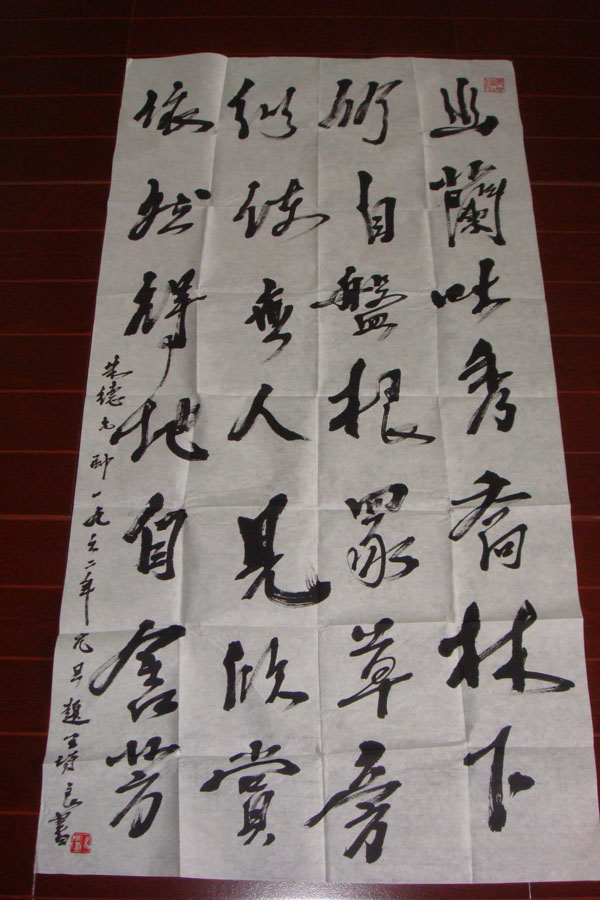 幽蘭吐秀喬林下
仍自盤根眾草旁
纵使無人見欣賞
依然得地自含芳
朱德元帥一九六二年元旦題王良書